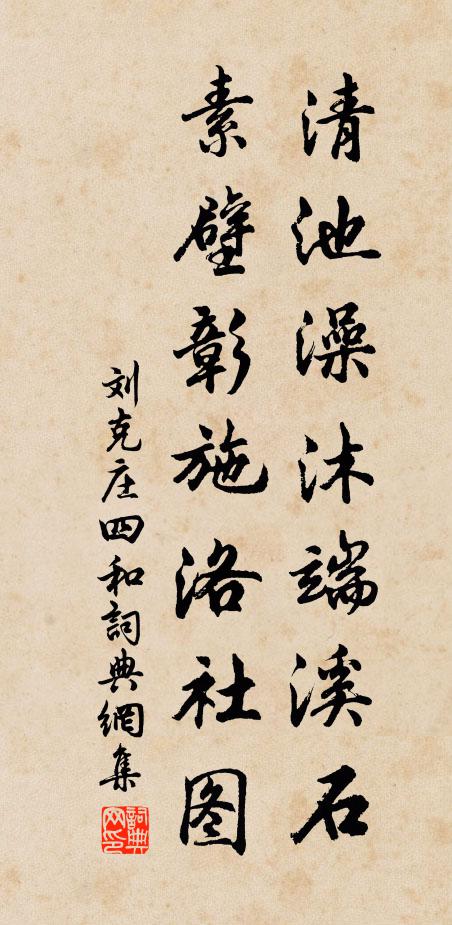 清池澡沐端溪石
素壁彰施洛社图
刘克庄四和詞典網集
詞典网印